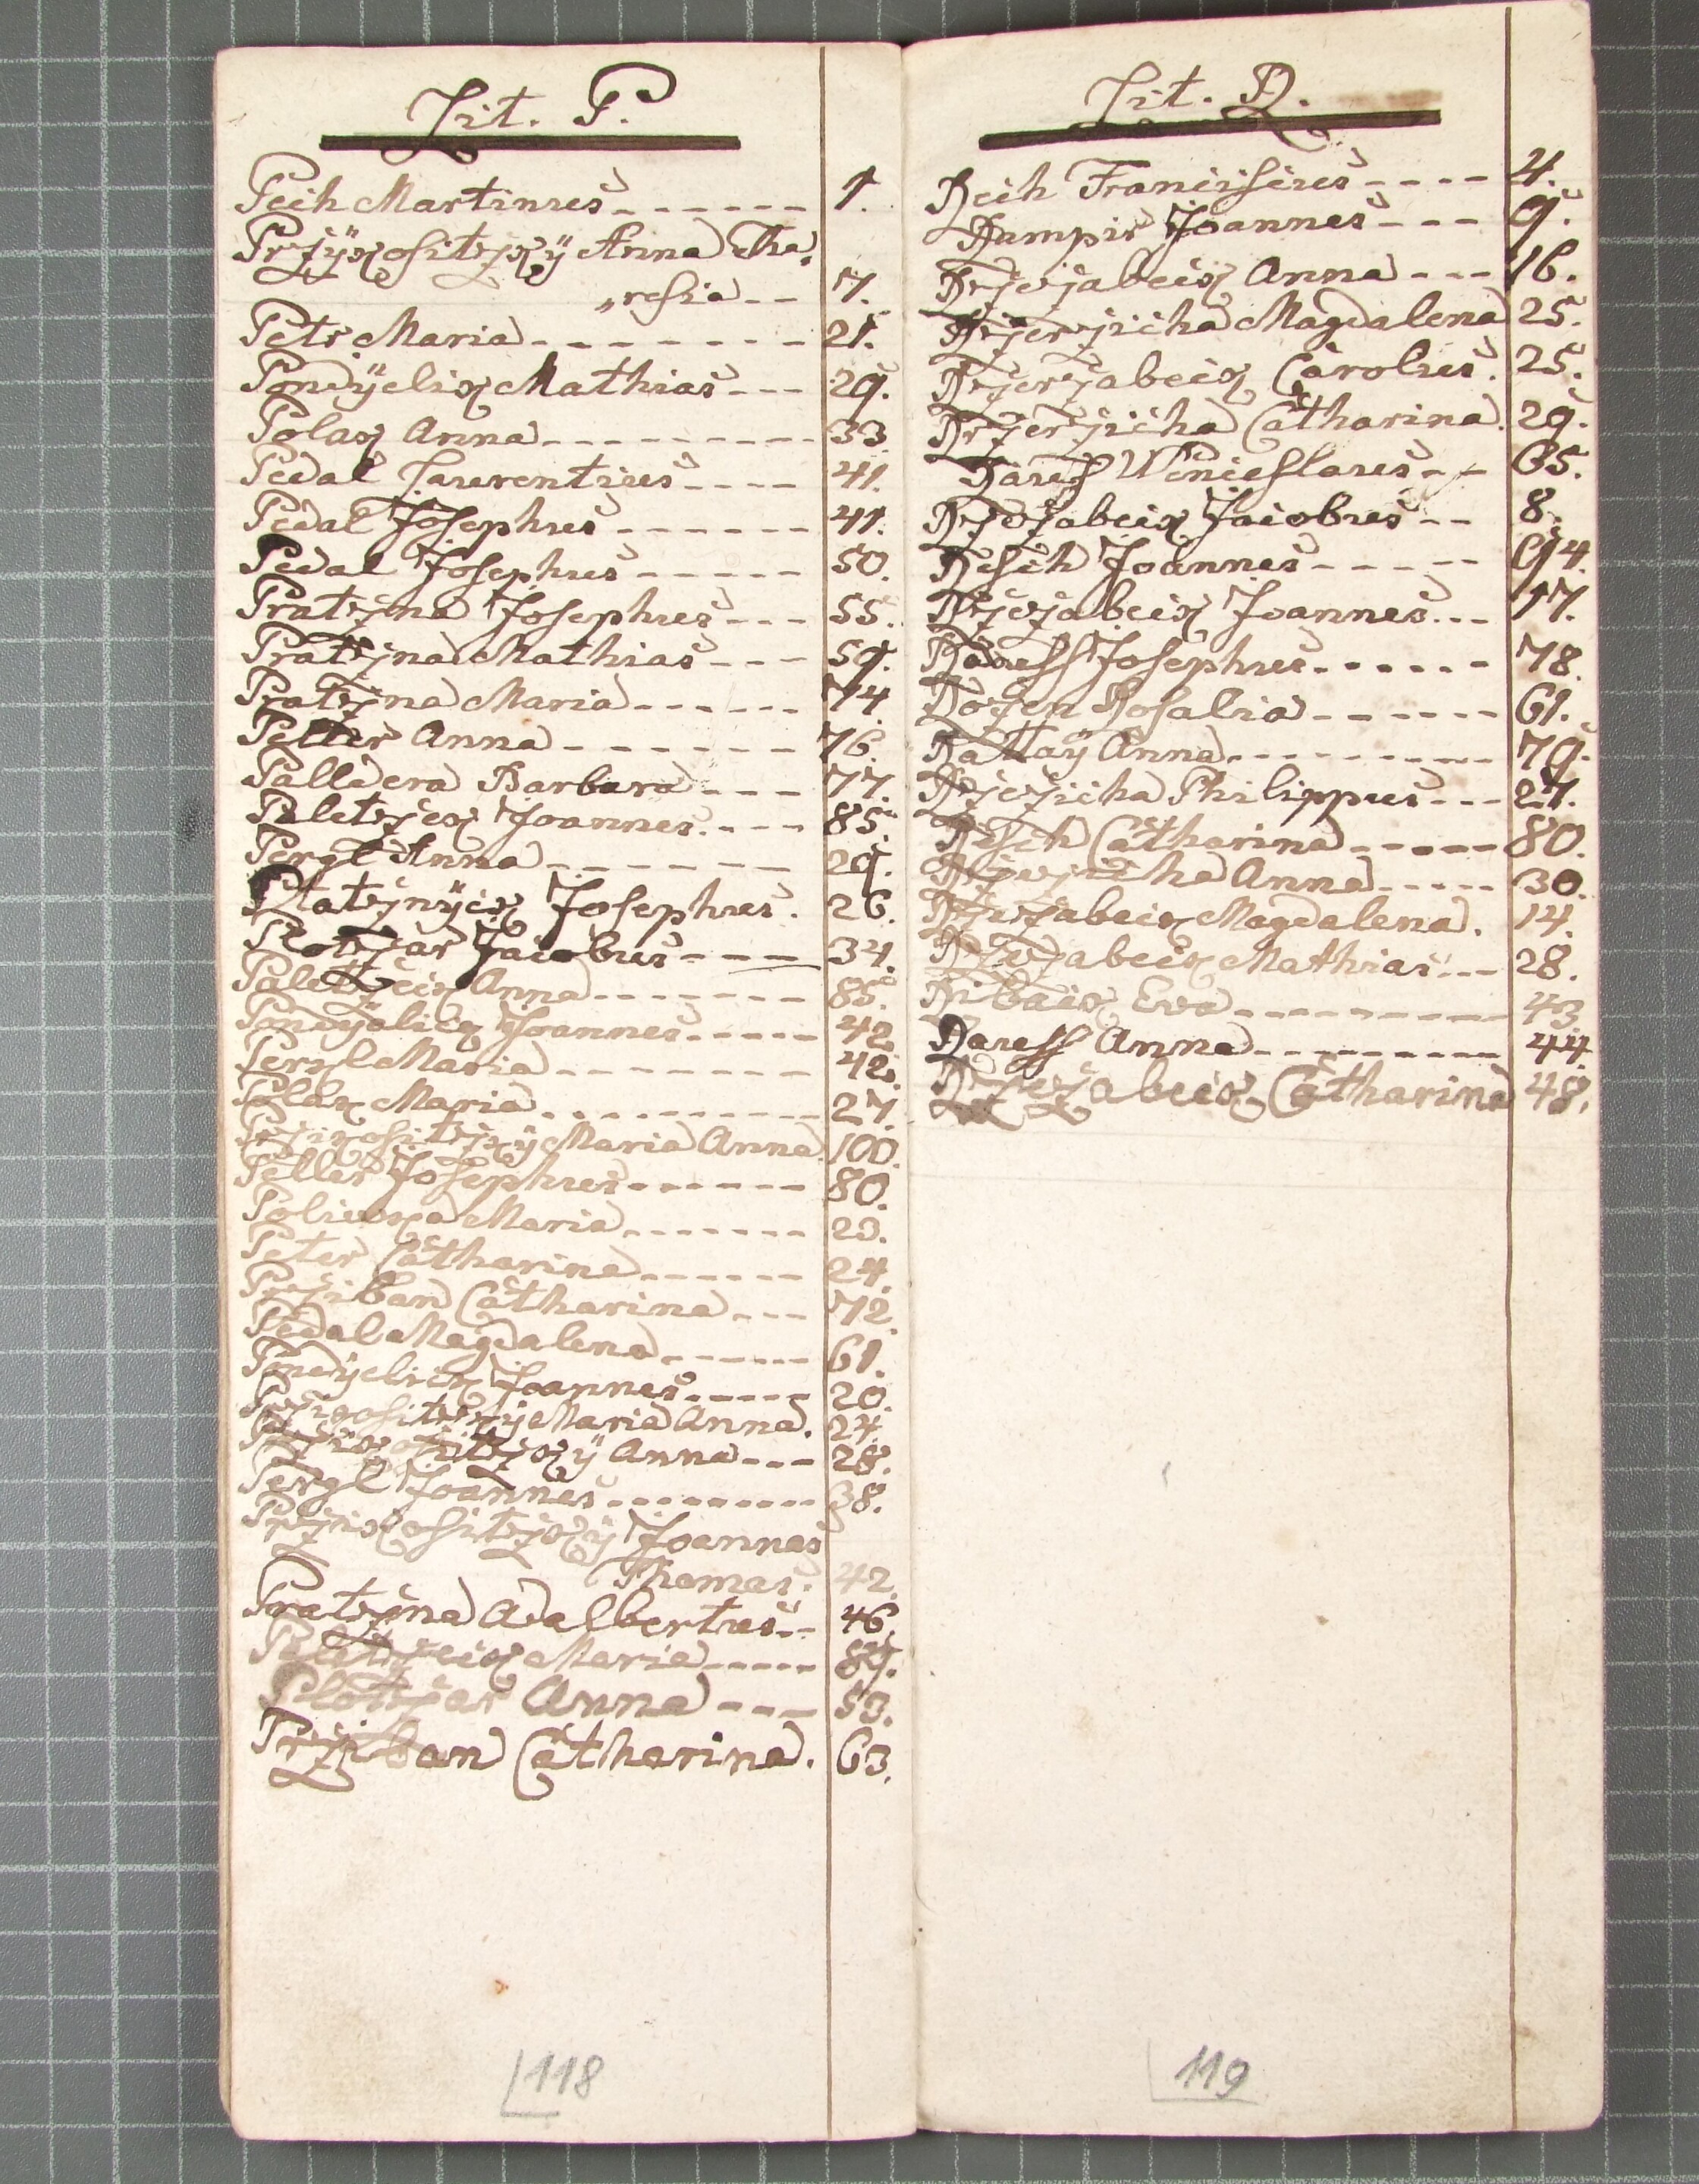 Lit. P.
Peih Martinus ------ 1.
Przÿkositzkÿ Anna The,
„resia -- 7.
Petr Maria ------- 21.
Pondÿelik Mathias --- 29.
Polak Anna --------- 33
Pedal Laurentius ---- 41.
Pedal Josephus ------ 41.
Pedal Josephus ----- 50.
Pratzna Josephus --- 55.
Pratzna Mathias --- 59.
Pratzna Maria ------ 74
Petter Anna ------ 76.
Palldera Barbara --- 77.
Paletzek Joannes. ---- 85.
Pergl Anna ------ 29.
Platznÿck Josephus. 26.
Plotzar Jacobus ---- 34.
Paletzeck Anna ------- 85.
Pondÿelick Joannes ----- 42
Pergl Maria ------- 42.
Plak Maria ---------- 27.
Przikositzkÿ Maria Anna. 100.
Peller Josephus ------ 80.
Poliwka Maria ------- 23.
Peter Catharina ------ 24.
Prziban Catharina --- 72.
Pedal Magdalena ------ 61.
Pondÿelick Joannes ----- 20.
Przikositzkÿ Maria Anna. 24.
Przikositzkÿ Anna --- 28.
Pergl Joannes --------- 38.
Przikositzkÿ Joannes
Thomas. 42.
Pratzna Adalbertus -- 46.
Paletzeck Maria ----- 89.
Plotzar Anna --- 53.
Przÿban Catharina. 63.
118
Lit. R.
Reih Franciscus ---- 4.
Rumpir Joannes --- 9.
Rzerzabeck Anna --- 16.
Rzerzicha Magdalena 25.
Rzerzabeck Carolus. 25.
Rrzerzicha Catharina. 29.
Raress Wencieslaus -- 65.
Rzerzabeck Jacobus -- 8.
Resch Joannes ----- 94.
Rzerzabeck Joannes --- 17.
Raress Josephus ------ 78.
Rozen Rosalia ------ 61.
Rattaÿ Anna --------- 79.
Rzerzicha Philippus --- 27.
Resch Catharina ----- 80.
Rzerzicha Anna ----- 30.
Rzerzabeck Magdalena. 14.
Rzerzabeck Mathias --- 28.
Riback Eva --------- 43
Raress Anna --------- 44
Rzerzabeck Catharina 48.
119